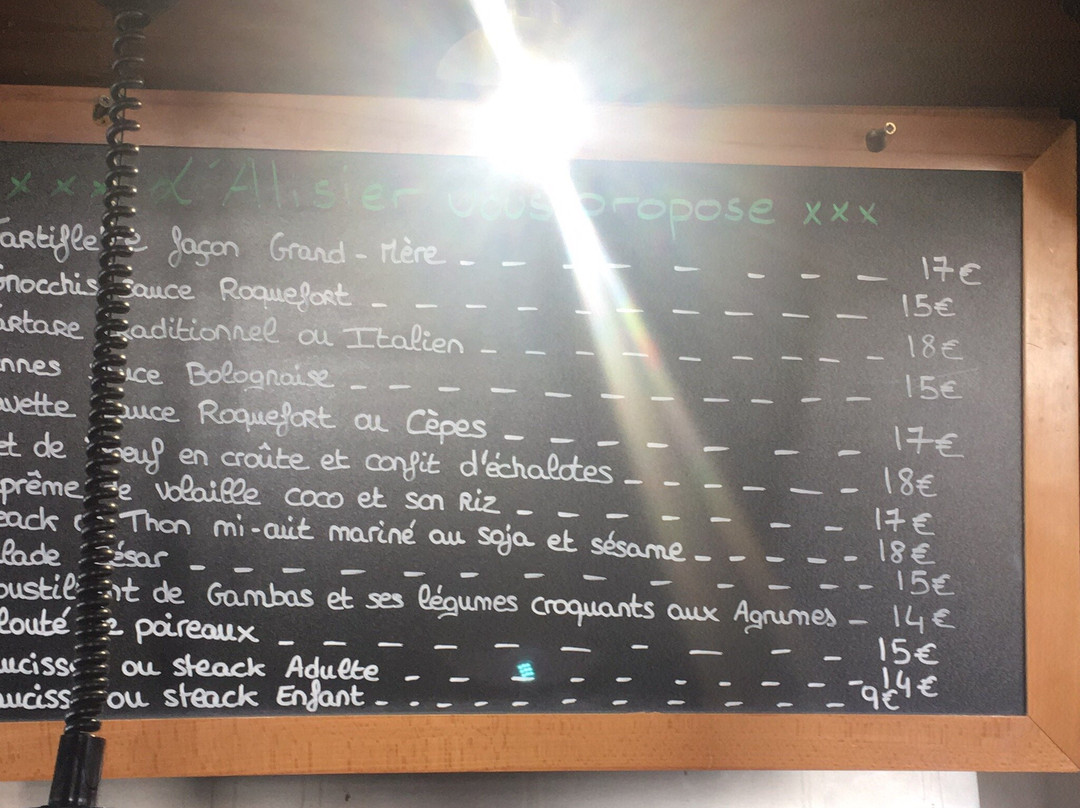 xxx L'Alisier vous propose xxx
artifle façon Grand-Mère 17€
Gnocchis sauce Roquefort 15€
artare traditionnel ou Italien 18€
nnes uce Bolognaise 15€
avette auce Roquefort ou Cèpes 17€
et de boeuf en croûte et confit d'échalotes 18€
prême de volaille coco et son Riz 17€
eack Thon mi-cuit mariné au soja et sésame 18€
lade ésar 15€
oustill nt de Gambas et ses légumes croquants aux Agrumes 14€
louté de poireaux 15€
uciss ou steack Adulte 14€
uciss ou steack Enfant 9€